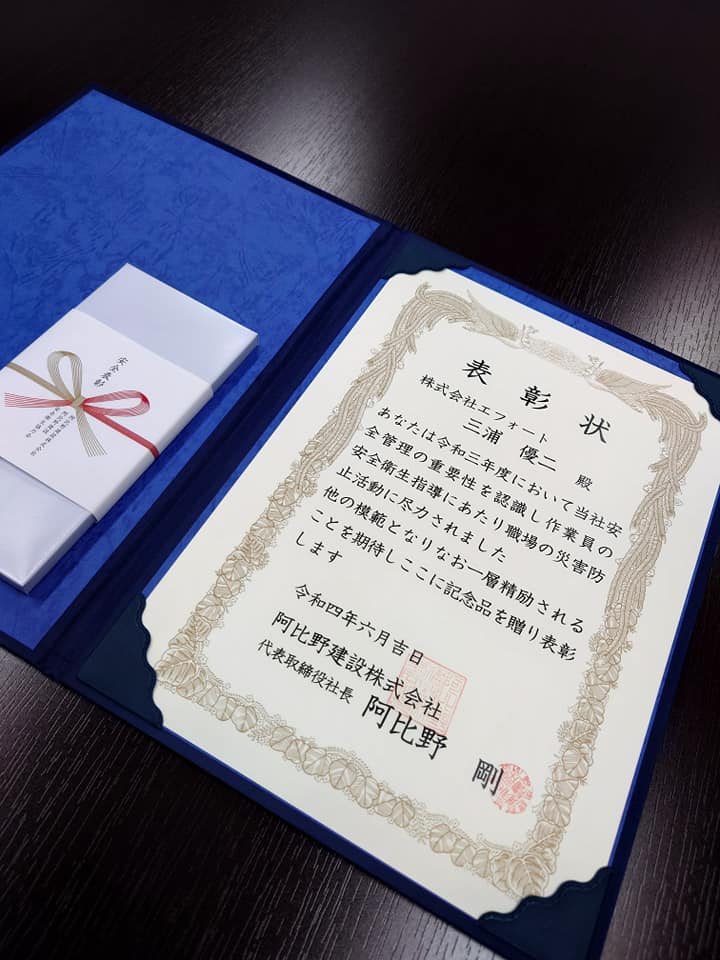 安全表彰
表彰状
株式会社エフォート
三浦 優二 殿
あなたは令和三年度において当社安
全管理の重要性を認識し作業員の
安全衛生指導にあたり職場の災害防
止活動に尽力されました
他の模範となりなお一層精励される
ことを期待しここに記念品を贈り表彰
します
令和四年六月吉日
阿比野建設株式会社
代表取締役社長 阿比野 剛